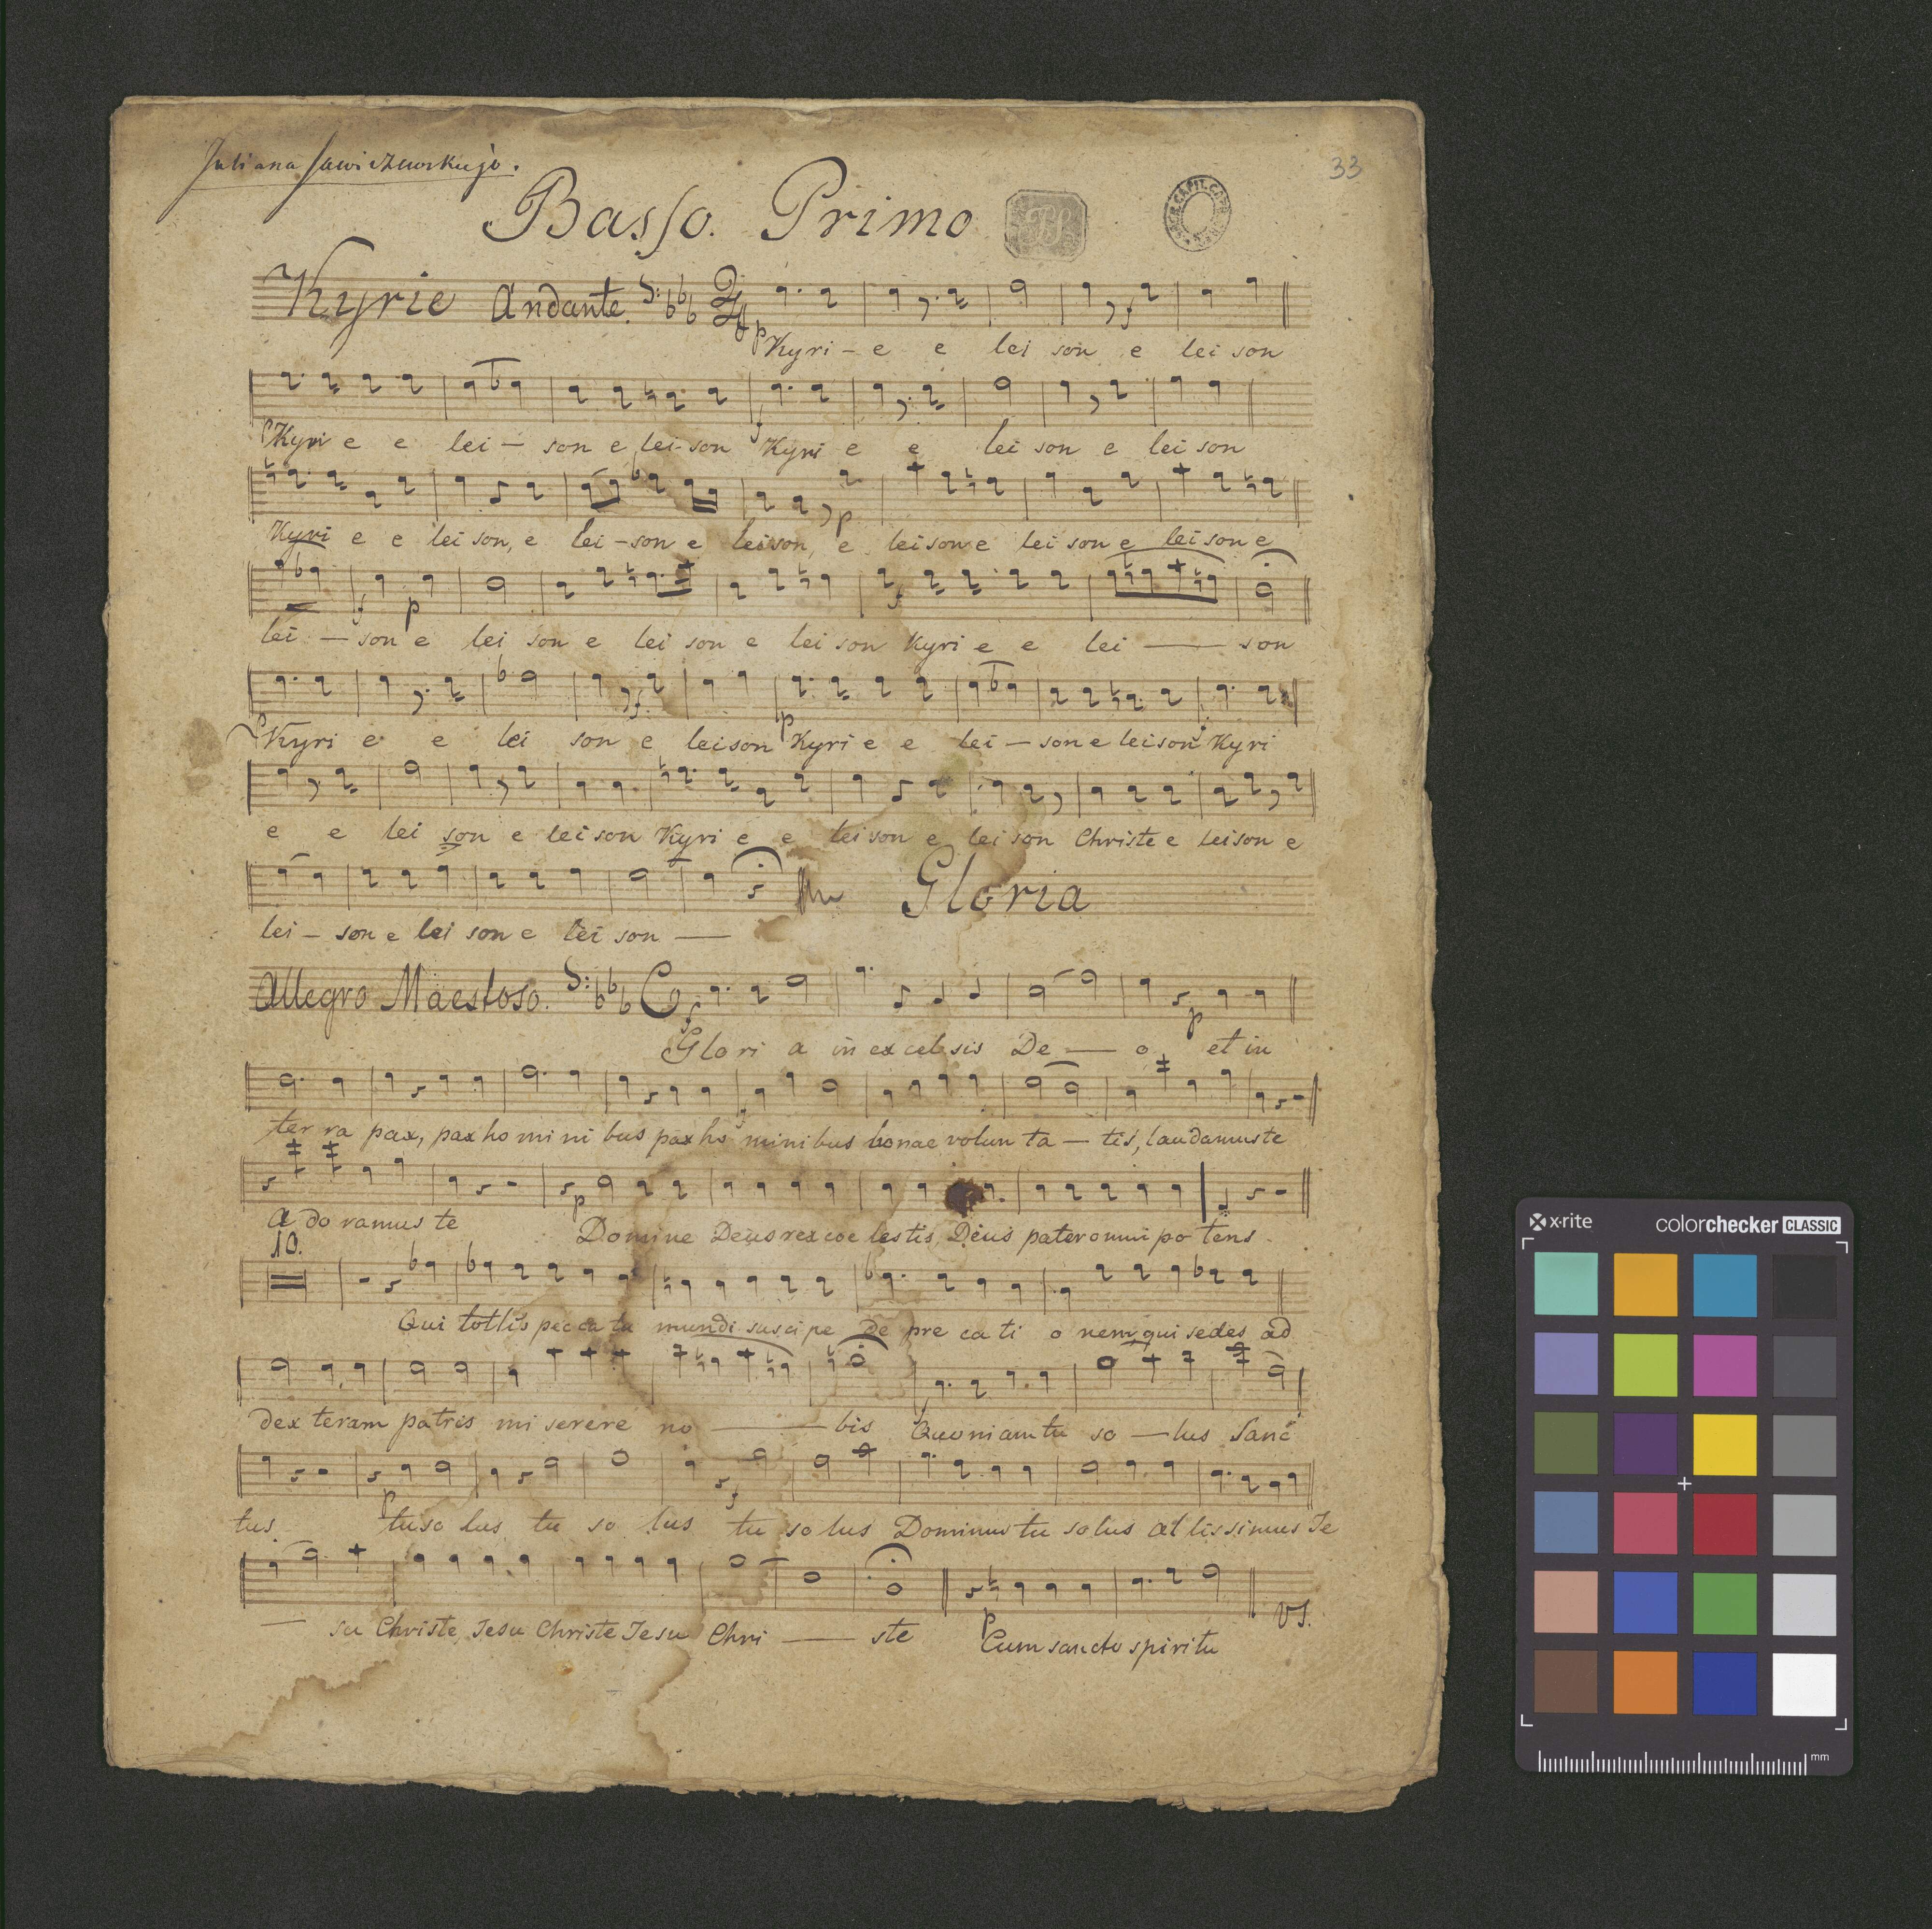 Juliana
33
Basso. Primo
JS
Kyrie Andante.
p f
Kyri - e e lei son e lei son
Kyri e e lei - son e lei-son Kyri e e lei son e lei son
Kyri e e lei son, e lei - son e leison, e leison e lei son e lei son e
lei - son e lei son e lei son e lei son Kyri e e lei — son
Kyri e e lei son e leison Kyri e e lei - son e leison Kyri
e e lei son e lei son Kyri e e lei son e lei son Christe e leison e
Gloria
lei - son e lei son e lei son —
Allegro Maestoso.
Glori a in excelsis De — o, et in
ter ra pax, pax ho mi ni bus pax ho minibus bonae volun ta - tis, laudamus te
a do ramus te Domine Deus rex coe lestis, Deus pater omni po tens.
10.
Qui tollis pecca ta mundi susci pe de pre ca ti o nem, qui sedes ad
dex teram patris mi serere no — bis Quoniam tu so - lus Sanc
tus tu so lus tu so lus tu so lus Dominus tu solus al tissimus Je
— su Christe, Jesu Christe Jesu Chri — ste Cum sancto spiritu
VS.
x-rite colorchecker CLASSIC
mm